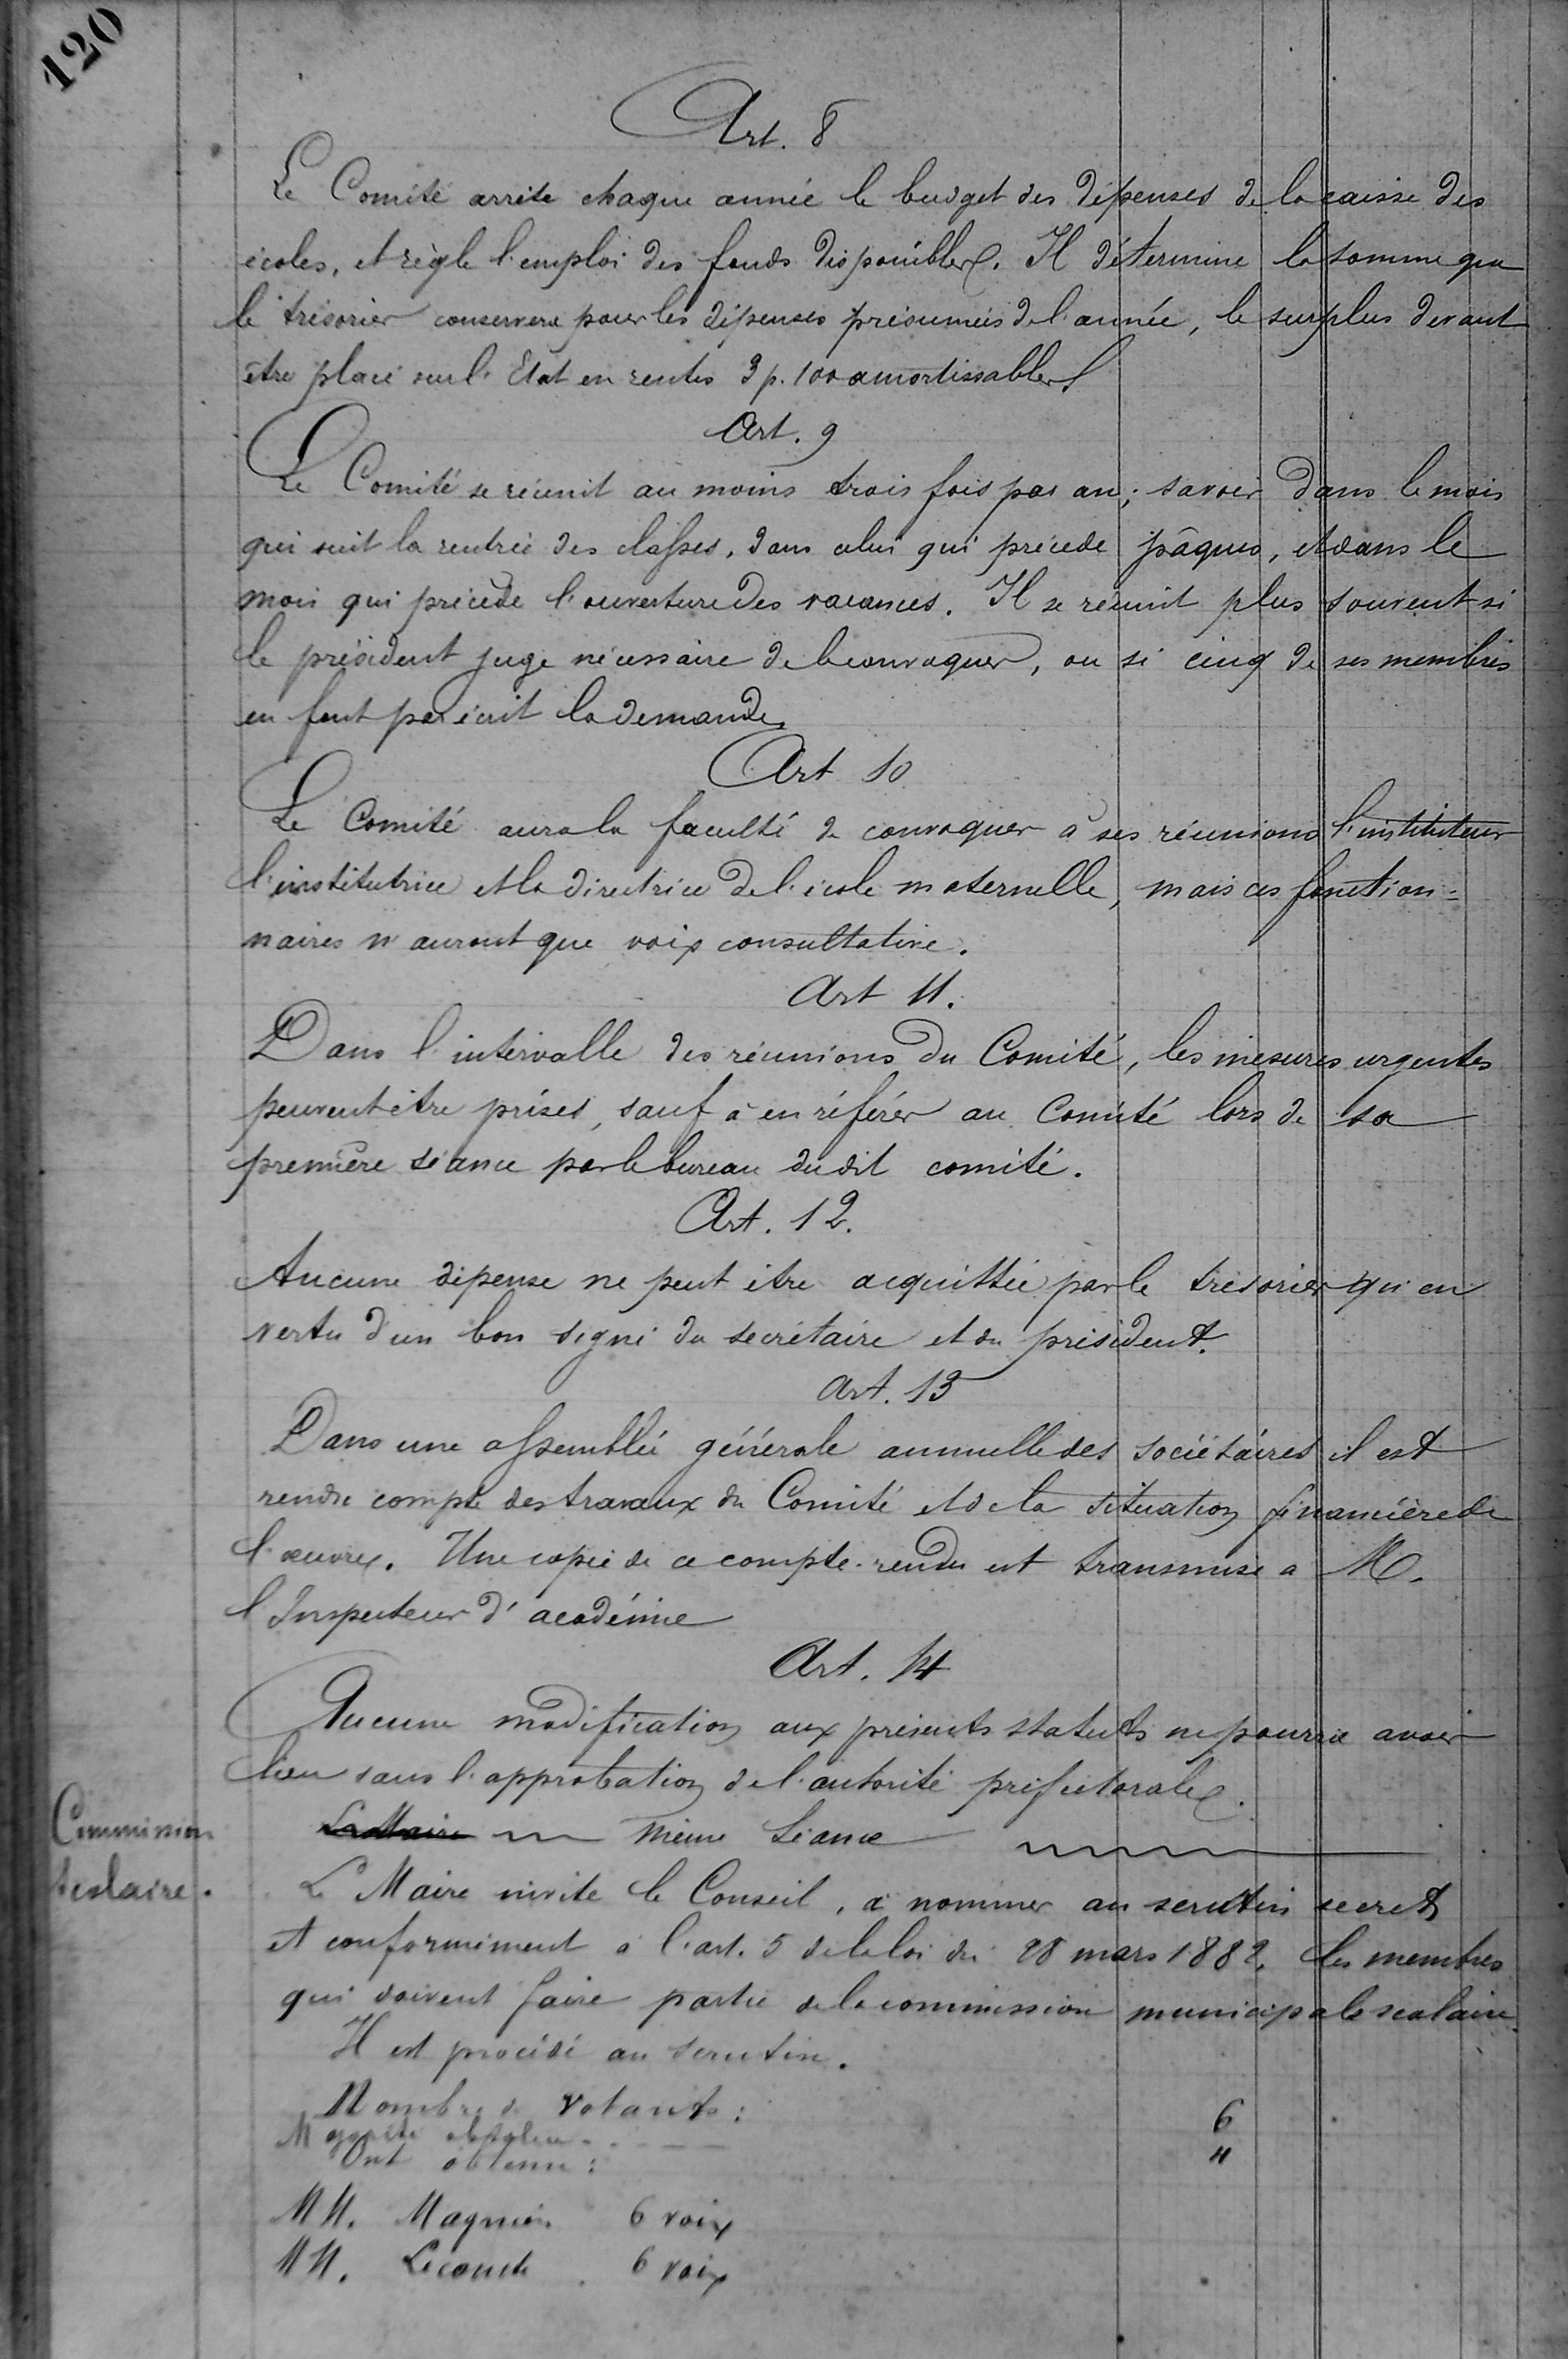 120
Art. 8
Le Comité arrête chaque année le budget des dépenses de la caisse des
écoles, et règle l'emploi des fonds disponibles. Il détermine la somme que
le trésorier conservera pour les dépenses présumées de l'année, le surplus devant
être placé sur l'Etat en rentes 3 p. 100 amortissables
Art. 9
Le Comité se réunit au moins trois fois par an; savoir dans le mois
qui suit la rentrée des classes, dans celui qui précède pâques, et dans le
mois qui précède l'ouverture des vacances. Il se réunit plus souvent si
le président juge nécessaire de le convoquer, ou si cinq de ses membres
en font par écrit la demande,
Art 10
Le Comité aura la faculté de convoquer à ses réunions l'instituteur
l'institutrice et la directrice de l'école maternelle, mais ces fonction-
naires n'auront que voix consultative.
Art 11.
Dans l'intervalle des réunions du Comité, les mesures urgentes
peuvent être prises, sauf à en référer au Comité lors de sa
première séance par le bureau du dit comité.
Art. 12.
Aucune dépense ne peut être acquittée par le trésorier qu'en
vertu d'un bon signé du secrétaire et du président.
Art. 13
Dans une assemblée générale annuelle des sociétaires il est
rendu compte des travaux du Comité et de la situation financière de
l'œuvre. Une copie de ce compte-rendu est transmise a M.
l'Inspecteur d'académie
Art. 14
Aucune modification aux présents statuts ne pourra avoir
lieu sans l'approbation de l'autorité préfectorale.
Le Maire même Séance
Commission
scolaire.
Le Maire invite le Conseil, à nommer au scrutin secret
et conformément à l'art. 5 de la loi du 28 mars 1882, les membres
qui doivent faire partie de la commission municipale scolaire
Il est procédé au scrutin.
Nombre de Votants: 6
Majorité absolue 4
Ont obtenu:
MM. Magnier 6 voix
MM. Lecomte 6 voix